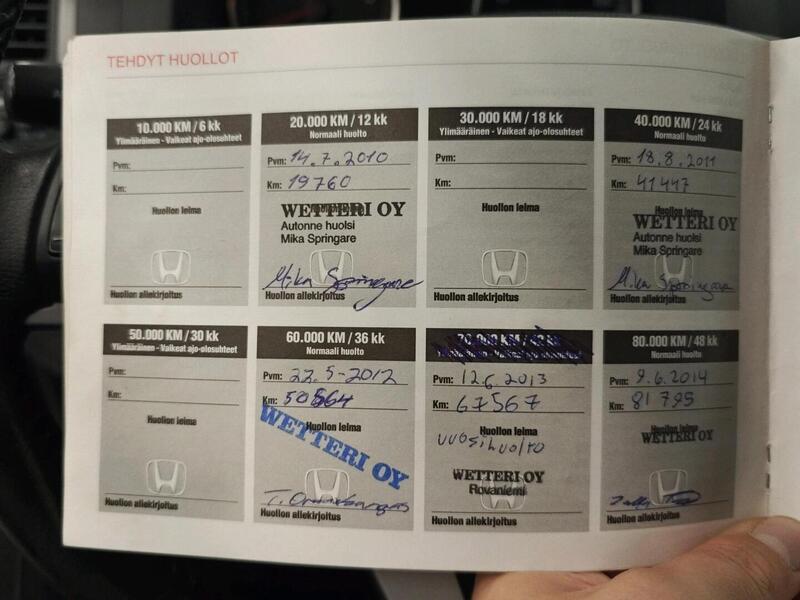 TEHDYT HUOLLOT
10.000 KM / 6 kk
Ylimääräinen - Vaikeat ajo-olosuhteet
Pvm:
Km:
Huollon leima
Huollon allekirjoitus
20.000 KM / 12 kk
Normaali huolto
Pvm: 14.7.2010
Km: 19760
WETTERI OY
Autonne huolsi
Mika Springare
Mika Springare
Huollon allekirjoitus
30.000 KM / 18 kk
Ylimääräinen - Vaikeat ajo-olosuhteet
Pvm:
Km:
Huollon leima
Huollon allekirjoitus
40.000 KM / 24 kk
Normaali huolto
Pvm: 18.8.2011
Km: 41447
Huollon leima
WETTERI OY
Autonne huolsi
Mika Springare
Mika Springare
Huollon allekirjoitus
50.000 KM / 30 kk
Ylimääräinen - Vaikeat ajo-olosuhteet
Pvm:
Km:
Huollon leima
Huollon allekirjoitus
60.000 KM / 36 kk
Normaali huolto
Pvm: 22.5-2012
Km: 50564
Huollon leima
WETTERI OY
Huollon allekirjoitus
Pvm: 12.6.2013
Km: 67567
Huollon leima
vuosihuolto
WETTERI OY
Rovaniemi
Huollon allekirjoitus
80.000 KM / 48 kk
Normaali huolto
Pvm: 9.6.2014
Km: 81795
Huollon leima
WETTERI OY
Huollon allekirjoitus